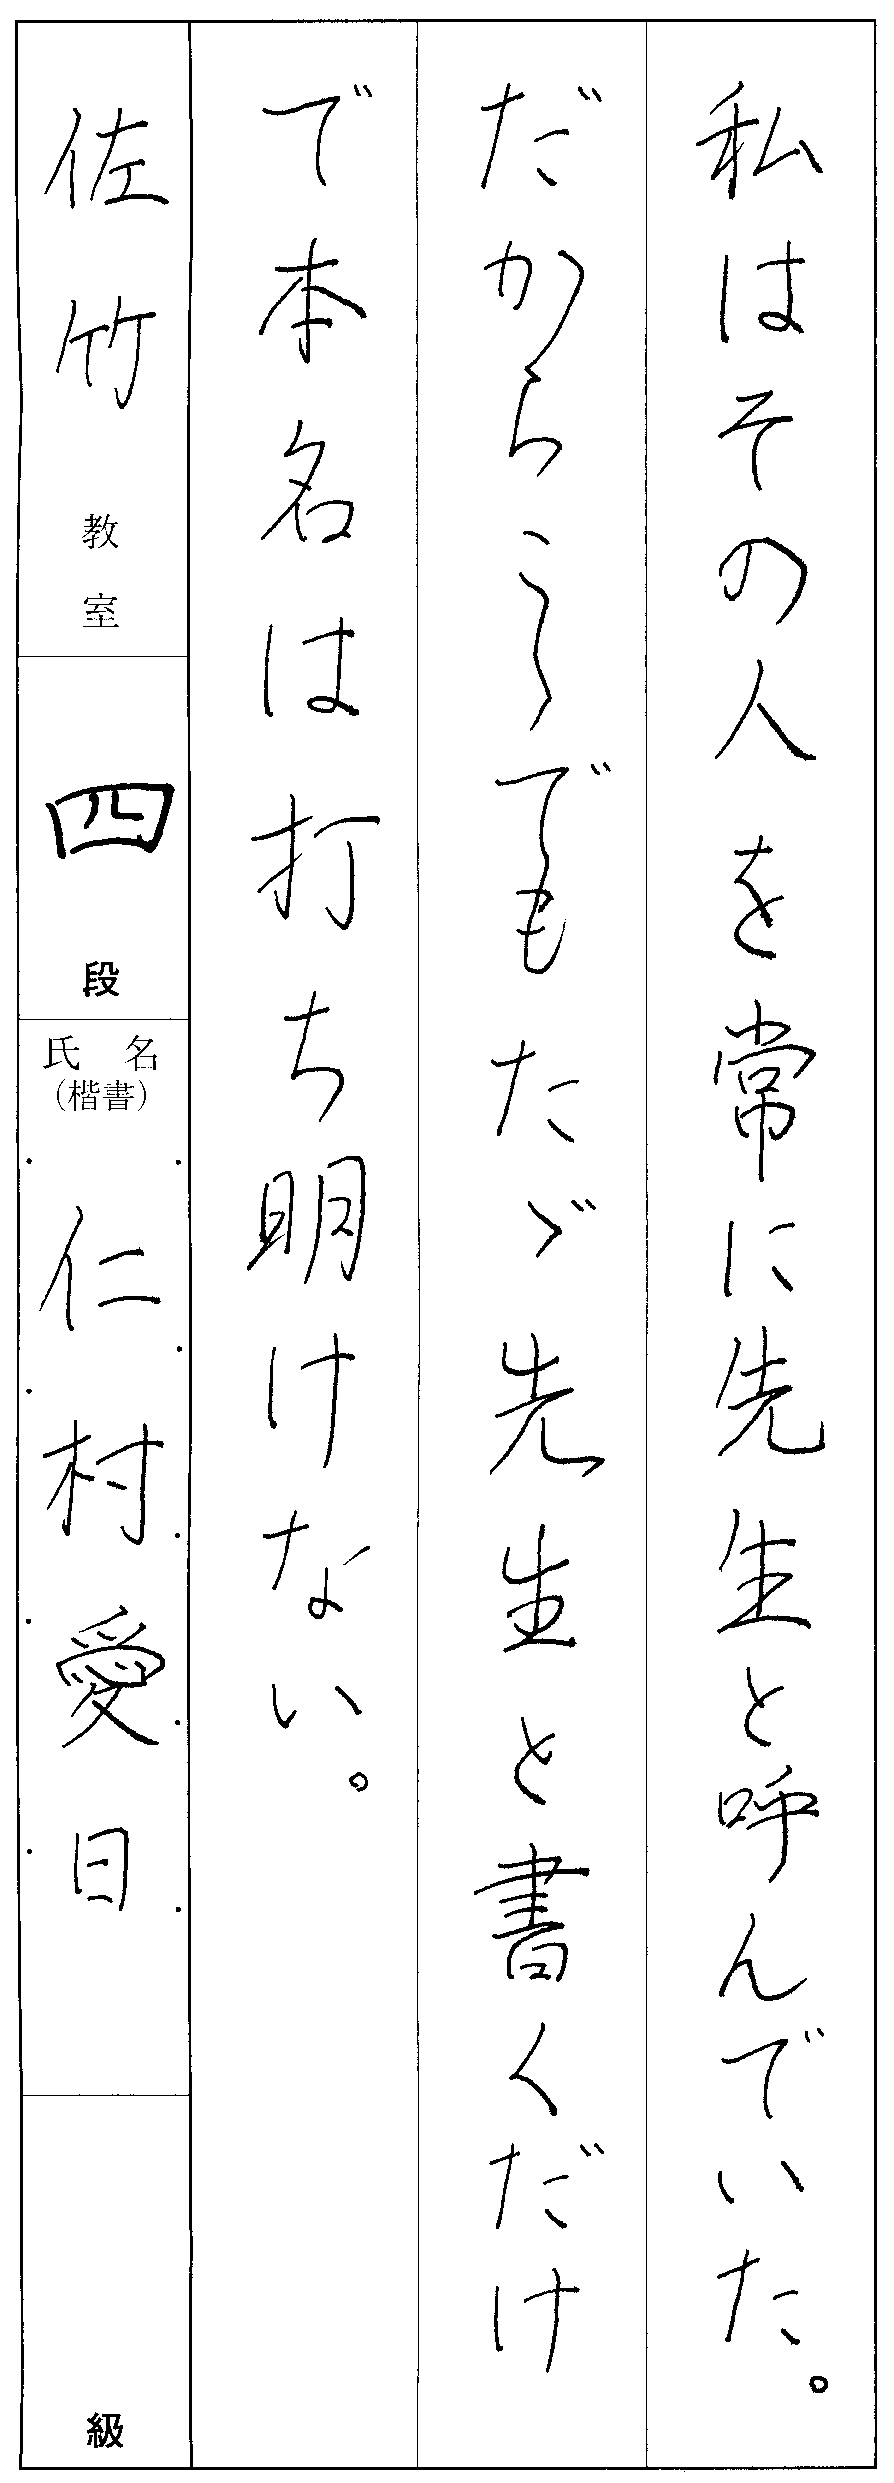 私はその人を常に先生と呼んでいた。
だからこゝでもたゞ先生と書くだけ
で本名は打ち明けない。
佐竹教室
四段
氏名
(楷書)
仁村愛日
級